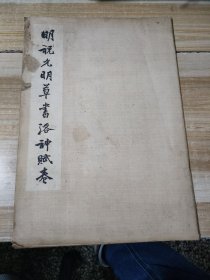 明祝允明草书洛神赋卷